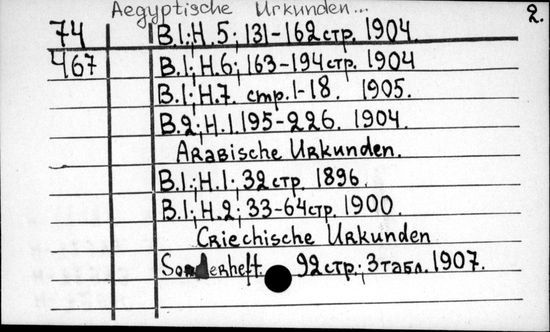 Aegyptische Urkunden... 2.
74 B.1; H.5; 131-162 стр. 1904.
467 B.1; H.6; 163-194 стр. 1904
B.1; H.7. стр. 1-18. 1905.
B.2; H.1. 195-226. 1904.
Arabische Urkunden.
B.1; H.1; 32 стр. 1896.
B.1; H.2; 33-64 стр. 1900.
Griechische Urkunden
Sonderheft. 92 стр.; 3 табл. 1907.